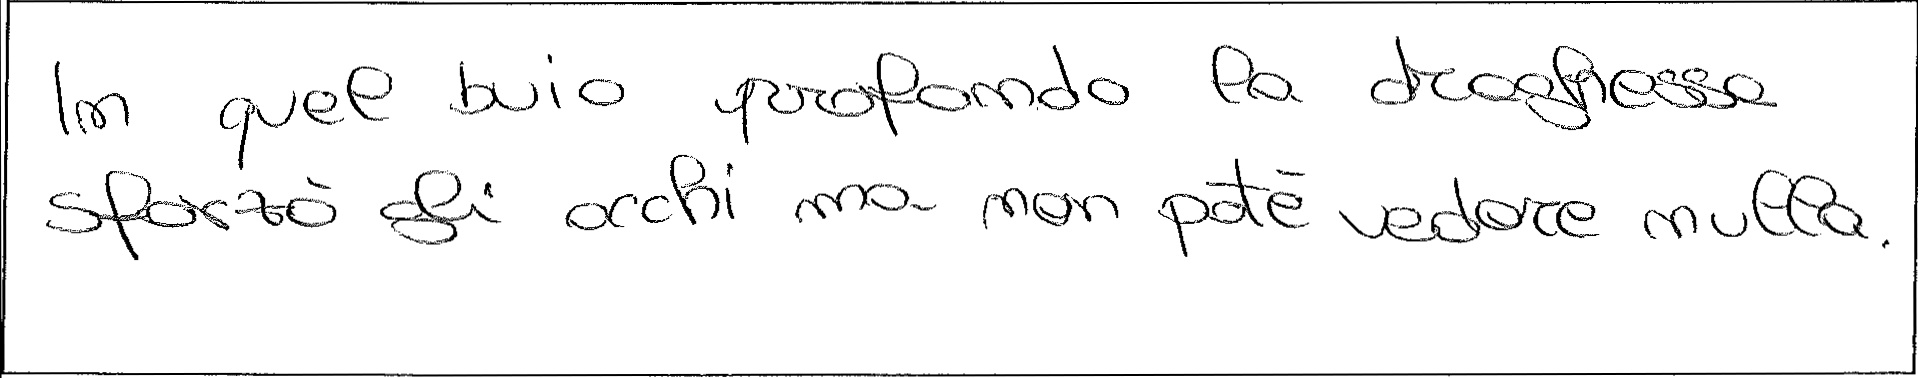 In quel buio profondo la draghessa
sforzò gli occhi ma non poté vedere nulla.